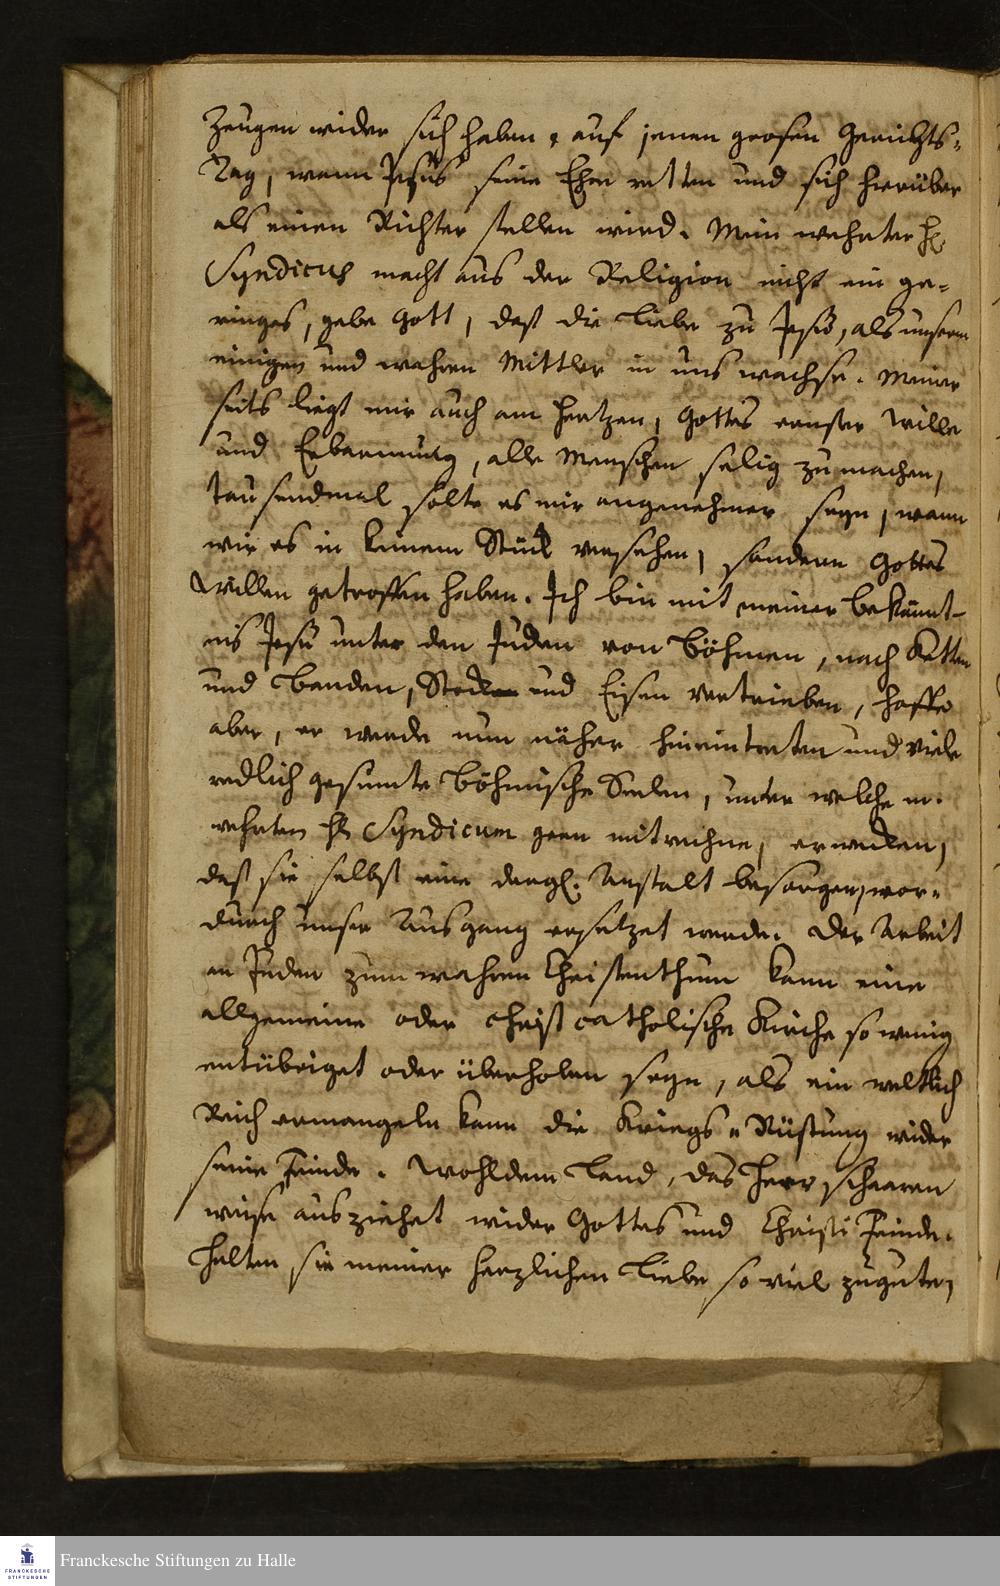 Zeugen wider sich haben, auf jenen grosen Gerichts-
Tag, wenn Jesus seine Ehre retten und sich hierüber
als einen Richter stellen wird. Mein wehrter H.
Syndicus macht aus der Religion nicht ein ge-
ringes, gebe Gott, daß die Liebe zu Jesu, als unserm
einigen und wahren Mittler in uns wachse. Meiner
seits liegt mir auch am Hertzen, Gottes ernster Wille
und Erbarmung, alle Menschen selig zu machen,
tausendmal solte es mir angenehmer seyn, wann
wir es in keinem Stück versehen, sondern Gottes
Willen getroffen haben. Ich bin mit meiner Bekännt-
nis Jesu unter den Juden von Böhmen, nach Ketten
und Banden, Stock und Eisen vertrieben, hoffe
aber, er werde nun näher hineintreten und viele
redlich gesinnte Böhmische Seelen, unter welche m.
wehrten H. Syndicum gern mitrechne, erwecken,
daß sie selbst eine dergl. Anstalt besorgen, wor-
durch unser Ausgang ersetzet werde. Der Arbeit
an Juden zum wahren Christenthum kann eine
allgemeine oder christcatholische Kirche so wenig
entübriget oder überhoben seyn, als ein weltlich
Reich ermangeln kann die Kriegs-Rüstung wider
seine Feinde. Wohl dem Land, das Heer schaaren
weise ausziehet wider Gottes und Christi Feinde.
Halten sie meiner herzlichen Liebe so viel zugute,
Franckesche Stiftungen zu Halle
FRANCKESCHE
STIFTUNGEN